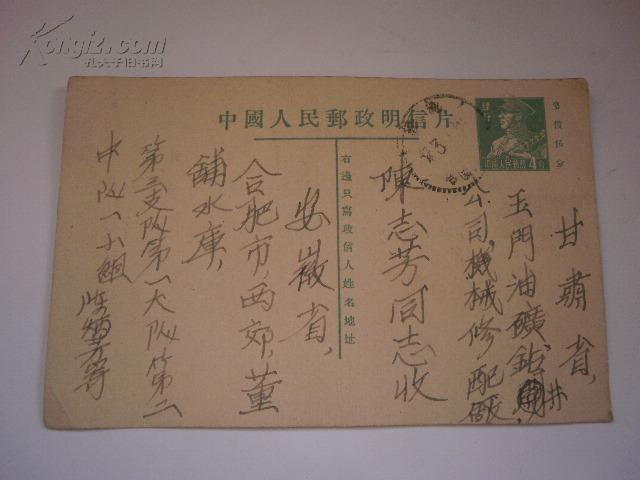 Kongfz.com
孔夫子旧书网
中國人民郵政明信片
售價伍分
中國人民郵政 4分
右邊只寫收信人姓名地址
甘肅省,
玉門油礦鉆井
公司,機械修配廠,
陳志芳同志收
安徽省,
合肥市,西郊,董
鋪水庫,
第三支队第一大队第二
中队一小組
芳寄